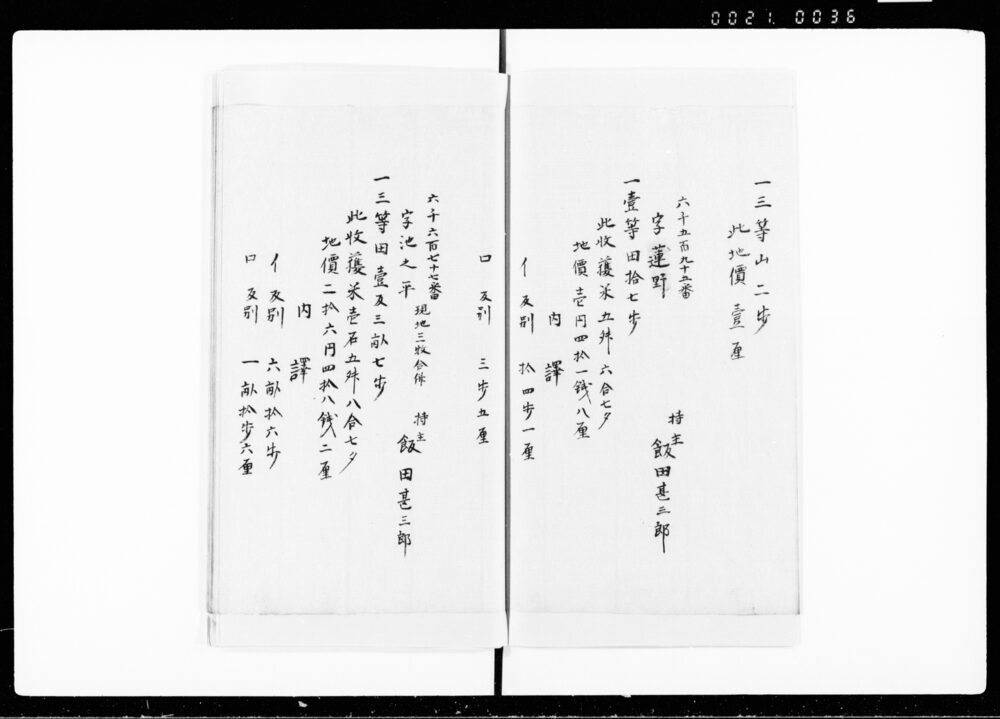 0021.0036
一三等山 二歩
此地價 壹厘
六千五百九十五番
字蓮野 持主 飯田甚三郎
一壹等田拾七歩
此收獲米五舛六合七夕
地價壱円四拾一銭八厘
内譯
イ反別 拾四歩一厘
ロ反別 三歩五厘
六千六百七十七番
字池之平 現地三牧合併 持主 飯田甚三郎
一三等田壹反三畝七歩
此收獲米壱石五舛八合七夕
地價二拾六円四拾八銭二厘
内譯
イ反別 六畝拾六歩
ロ反別 一畝拾歩六厘